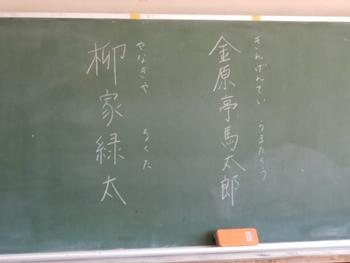 きんげんてい うまたろう
金原亭馬太郎
やなぎや ろくた
柳家緑太